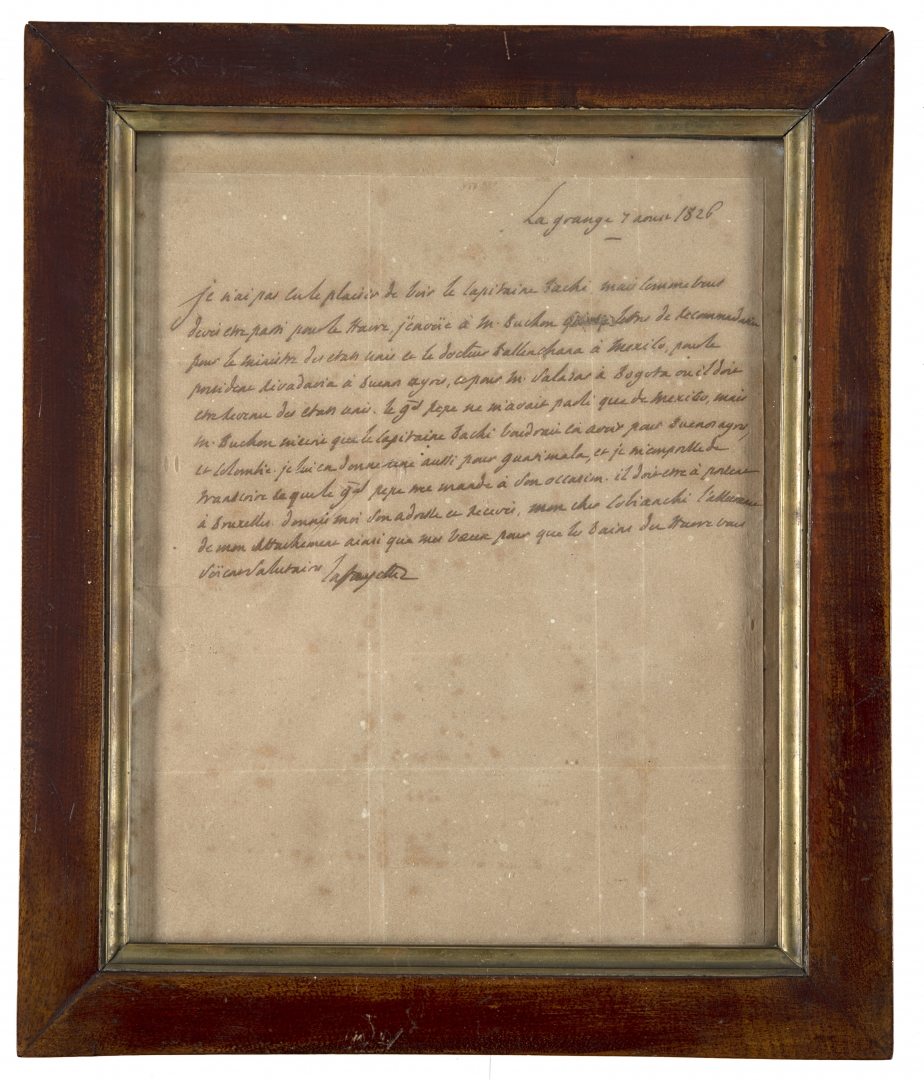 La grange 7 aoust 1826
je n'ai pas eu le plaisir de voir le Capitaine Bachi mais comme vous
devés etre parti pour le Havre, j'envoïe à M. Buchon lettres de Recommandation
pour le ministre des etats unis et le docteur à Mexico, pour le
president Rivadavia à Buenos ayres, et pour M. Salazar à Bogota où il doit
etre revenu des etats unis. le gal Pepe ne m'avait parlé que de Mexico, mais
M. Buchon m'ecrit que le Capitaine Bachi voudrait en avoir pour Buenos ayres,
et Colombie. je lui en donne une aussi pour guatimala, et je m'empresse de
transcrire ce que le gal pepe me mande à son occasion. il doit etre à present
à Bruxelles. donnés moi son adresse et recevés, mon cher Cobianchi l'assurance
de mon attachement ainsi que mes voeux pour que les bains du Havre vous
soïent salutaires lafayette